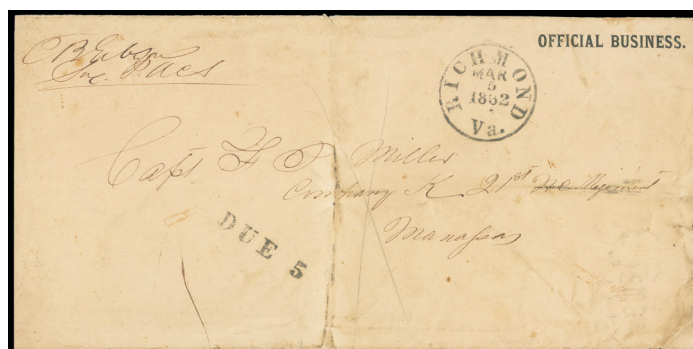 OFFICIAL BUSINESS.
C B Gibson
Sur. P.ACS
RICHMOND
MAR
5
1862
Va.
Capt F P Miller
Company K 21st NC Regiment
Manassas
DUE 5